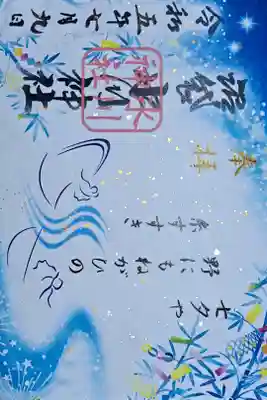 七夕や
野にもねがひの
糸すすき
奉拝
氷川神社
令和五年七月九日